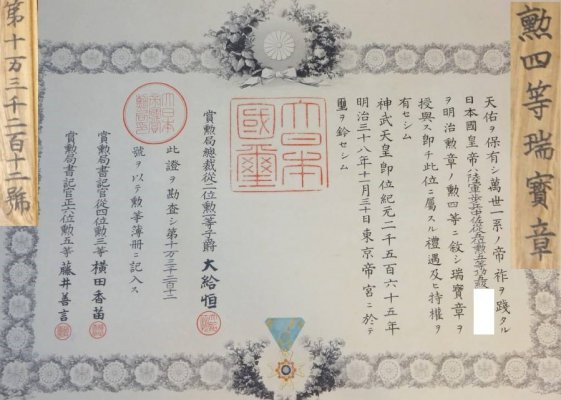 勲四等瑞寶章
天佑ヲ保有シ萬世一系ノ帝祚ヲ踐タル
日本國皇帝ハ陸軍歩兵中佐從五位勲五等功五級
ヲ明治勲章ノ勲四等ニ敘シ瑞寶章ヲ
授與ス即チ此位ニ屬スル禮遇及ヒ特權ヲ
有セシム
神武天皇即位紀元二千五百六十五年
明治三十八年十一月三十日東京帝宮ニ於テ
璽ヲ鈐セシム
大日本國璽
賞勲局總裁從二位勲一等子爵 大給恒
此證ヲ勘査シ第十万三千二百十二
號ヲ以テ勲等簿册ニ記入ス
賞勲局書記官從四位勲三等 横田香苗
賞勲局書記官正六位勲五等 藤井善言
第十万三千二百十二號